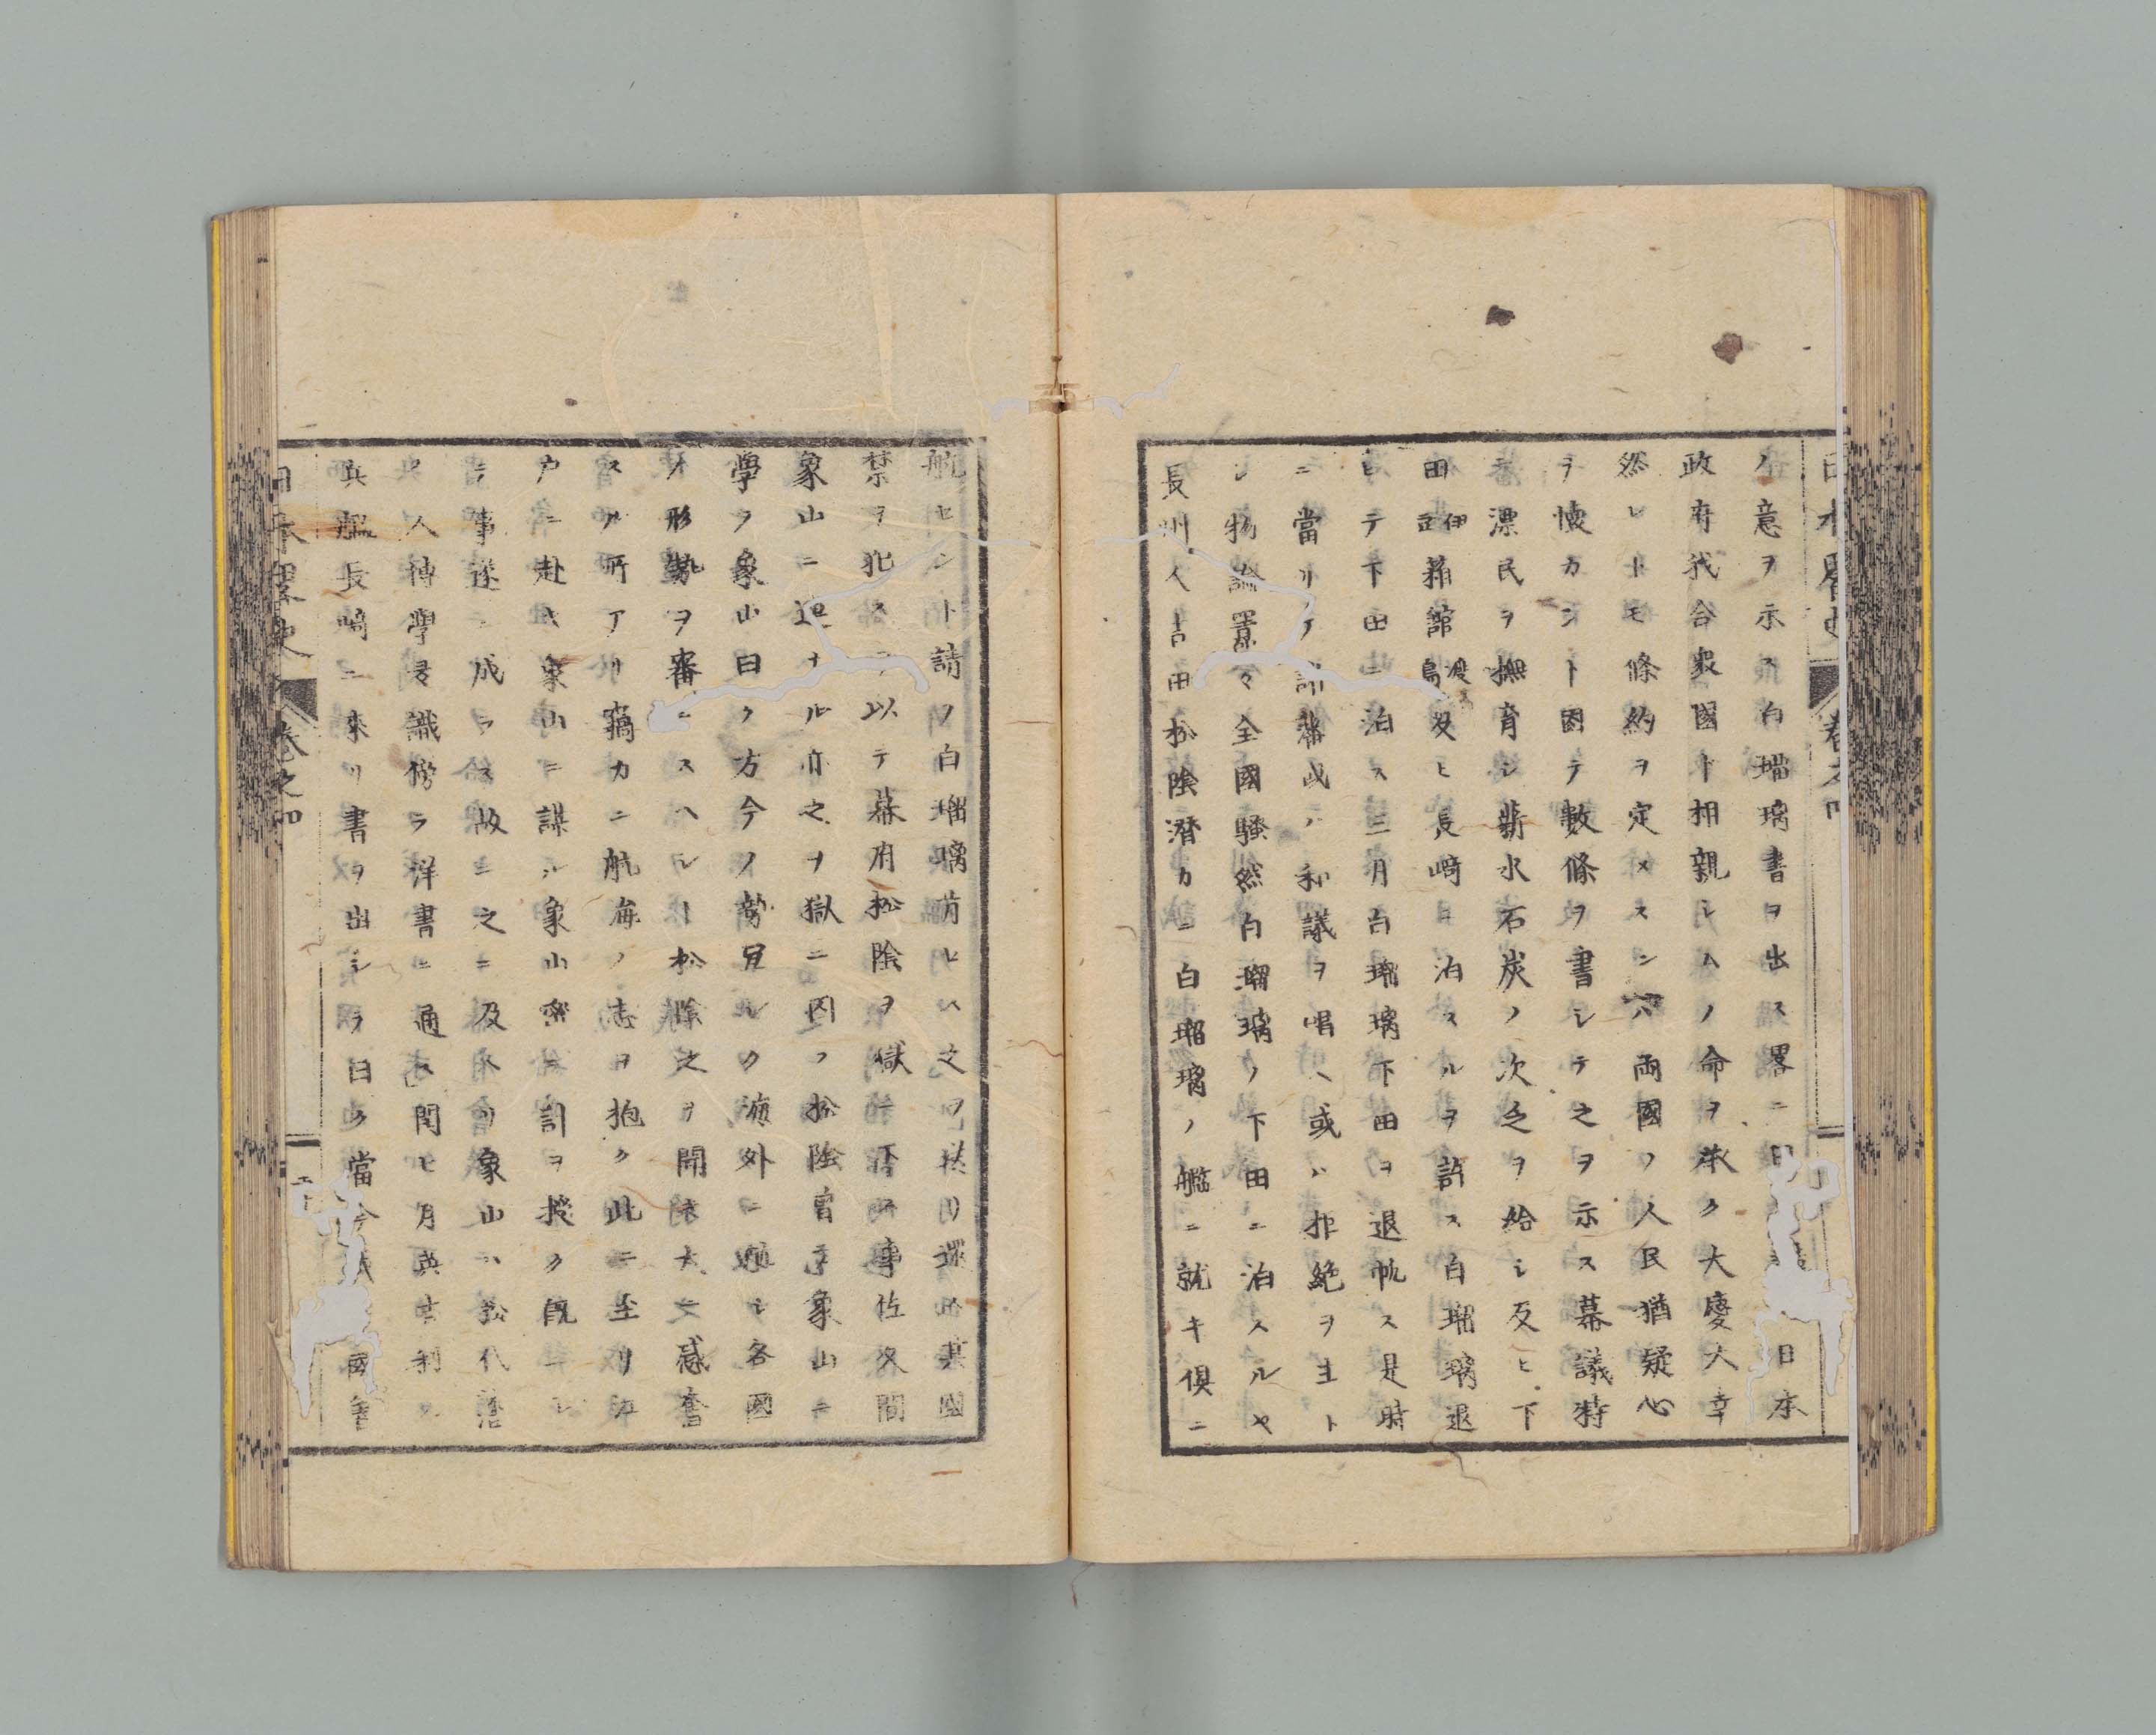 日本畧史 卷之四
ノ意ヲ示ス白瑠璃書ヲ出ス畧ニ曰 日本
政府我合衆國ト相親シムノ命ヲ承ク大慶大幸
然レトモ條約ヲ定メスンハ兩國ノ人民猶疑心
ヲ懷カント因テ數條ヲ書シテ之ヲ示ス幕議特
ニ漂民ヲ撫育シ薪水石炭ノ次乏ヲ給シ及ヒ下
田伊豆箱舘渡島及ヒ長崎ニ泊スルヲ許ス白瑠璃退
ヒテ下田ニ泊ス三月白瑠璃下田ヲ退帆ス是時
ニ當リ諸藩或ハ和議ヲ唱ヘ或ハ拒絶ヲ主ト
シ物論囂々全國騷然白瑠璃ノ下田ニ泊スルヤ
長州人吉田松陰潜カニ白瑠璃ノ艦ニ就キ倶ニ
航セント請フ白瑠璃肯ヒス之ヲ送リ還ス其國
禁ヲ犯スヲ以テ幕府松陰ヲ獄ニ下ス事佐久間
象山ニ連ナル亦之ヲ獄ニ囚フ松陰曽テ象山ニ
學フ象山曰ク方今ノ務宜シク海外ニ航シ各國
ノ形勢ヲ審ニスヘシト松陰之ヲ聞キ大ニ感奮
スル所アリ竊カニ航海ノ志ヲ抱ク此ニ至リ江
戸ニ赴キ象山ニ謀ル象山密ニ計ヲ授ク既ニシ
テ事遂ニ成ラス故ニ之ニ及ヘリ象山ハ松代藩
ノ人博學多識傍ラ洋書ニ通ス閏七月英吉利ノ
兵艦長崎ニ來リ書ヲ出シテ曰ク當今 國魯
日本畧史 卷之四